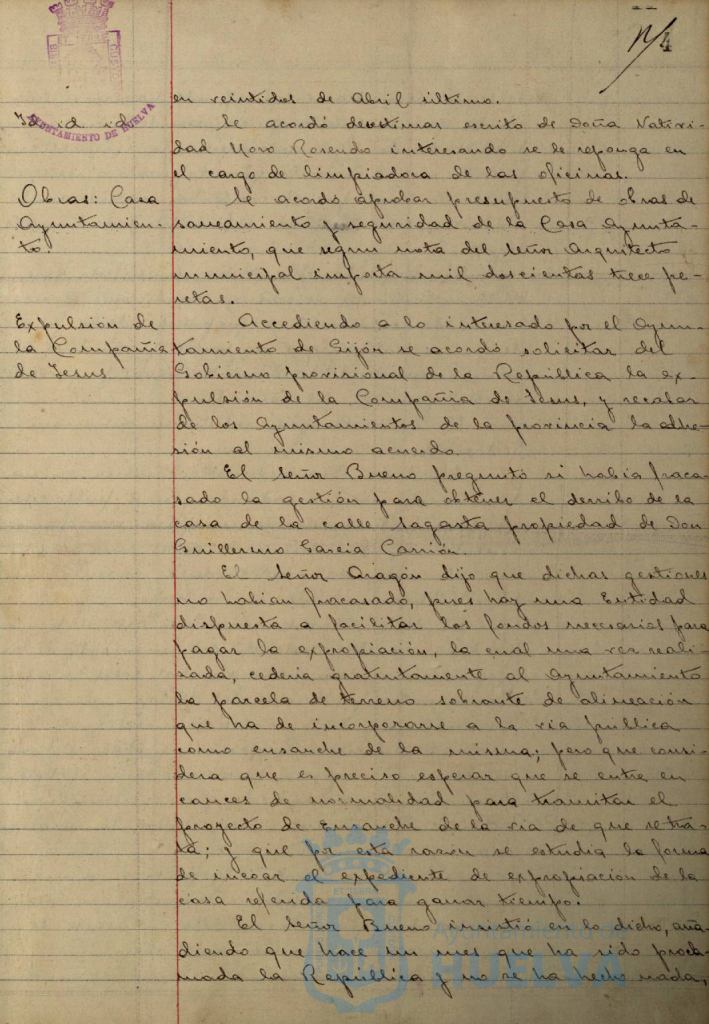 N/4
AYUNTAMIENTO DE HUELVA
en veintidos de Abril último.
Id id id
Se acordó desestimar escrito de Doña Nativi-
dad Moro Rosendo interesando se le reponga en
el cargo de limpiadora de las oficinas.
Obras: Casa
Ayuntamien-
to.
Se acordó aprobar presupuesto de obras de
saneamiento y seguridad de la Casa Ayunta-
miento, que segun nota del Señor Arquitecto
municipal importa mil doscientas trece pe-
setas.
Expulsión de
la Compañia
de Jesus
Accediendo a lo interesado por el Ayun-
tamiento de Gijón se acordó solicitar del
Gobierno provisional de la República la ex-
pulsión de la Compañia de Jesus, y recabar
de los Ayuntamientos de la provincia la adhe-
sión al mismo acuerdo.
El Señor Bueno preguntó si habia fraca-
sado la gestión para obtener el derribo de la
casa de la calle Sagasta propiedad de Don
Guillermo Garcia Carrión.
El Señor Aragón dijo que dichas gestiones
no habian fracasado, pues hay una Entidad
dispuesta a facilitar los fondos necesarios para
pagar la expropiación, la cual una vez reali-
zada, cederia gratuitamente al Ayuntamiento
la parcela de terreno sobrante de alineación
que ha de incorporarse a la via pública
como ensanche de la misma; pero que consi-
dera que es preciso esperar que se entre en
cauces de normalidad para tramitar el
proyecto de Ensanche de la via de que se tra-
ta; y que por esta razón se estudia la forma
de incoar el expediente de expropiación de la
casa referida para ganar tiempo.
El Señor Bueno insistió en lo dicho, aña-
diendo que hace un mes que ha sido procla-
mada la República y no se ha hecho nada,
Ayuntamiento de
HUELVA